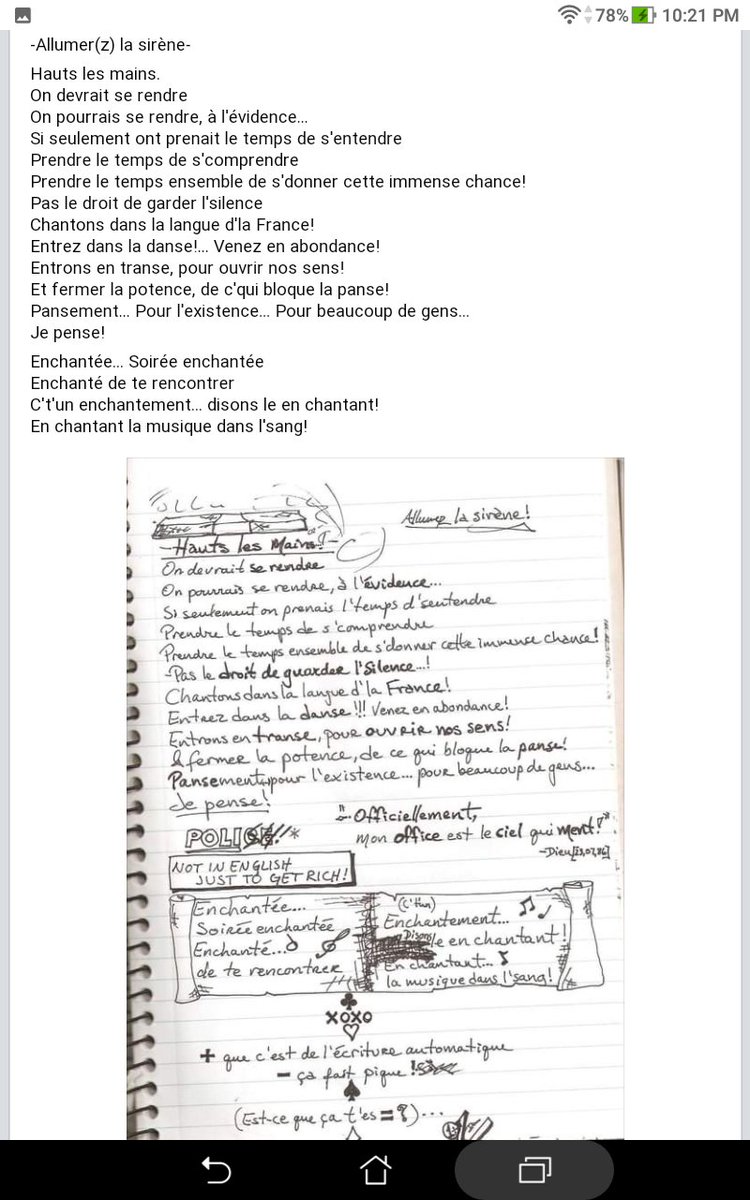 78% 10:21 PM
-Allumer(z) la sirène-
Hauts les mains.
On devrait se rendre
On pourrais se rendre, à l'évidence...
Si seulement ont prenait le temps de s'entendre
Prendre le temps de s'comprendre
Prendre le temps ensemble de s'donner cette immense chance!
Pas le droit de garder l'silence
Chantons dans la langue d'la France!
Entrez dans la danse!... Venez en abondance!
Entrons en transe, pour ouvrir nos sens!
Et fermer la potence, de c'qui bloque la panse!
Pansement... Pour l'existence... Pour beaucoup de gens...
Je pense!
Enchantée... Soirée enchantée
Enchanté de te rencontrer
C't'un enchantement... disons le en chantant!
En chantant la musique dans l'sang!
Allumez la sirène!
-Hauts les Mains!-
On devrait se rendre
On pourrais se rendre, à l'évidence...
Si seulement on prenais l'temps d's'entendre
Prendre le temps de s'comprendre
Prendre le temps ensemble de s'donner cette immense chance!
-Pas le droit de guarder l'Silence...!
Chantons dans la langue d'la France!
Entrez dans la danse!!! Venez en abondance!
Entrons en transe, pour ouvrir nos sens!
& fermer la potence, de ce qui bloque la panse!
Pansement, pour l'existence... pour beaucoup de gens...
Je pense!
"-Officiellement,
mon office est le ciel qui ment!"
-Dieu
POLICE!!*
NOT IN ENGLISH
JUST TO GET RICH!
Enchantée...
Soirée enchantée
Enchanté...
de te rencontrer
(C'tun)
Enchantement...
Disons le en chantant!
En chantant...
la musique dans l'sang!
XOXO
+ que c'est de l'écriture automatique
- ça fait pique!
(Est-ce que ça t'es = ?)...